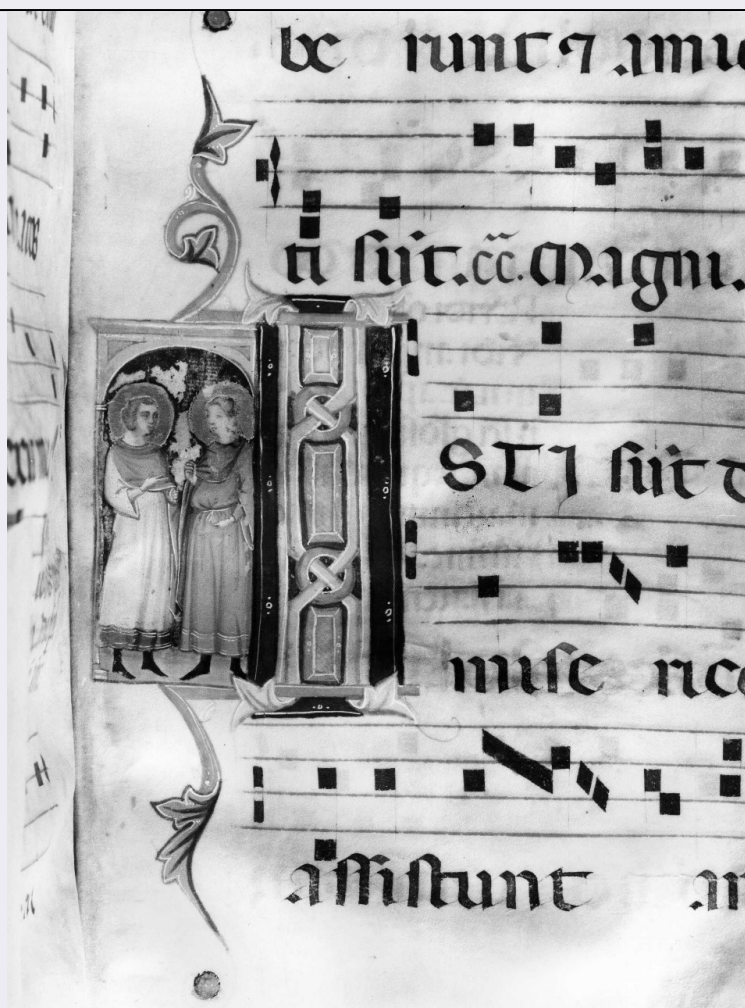 be runt ⁊ amic
ti sūt. cc. Magni.
I STI sūt d
mise rico
assistunt an